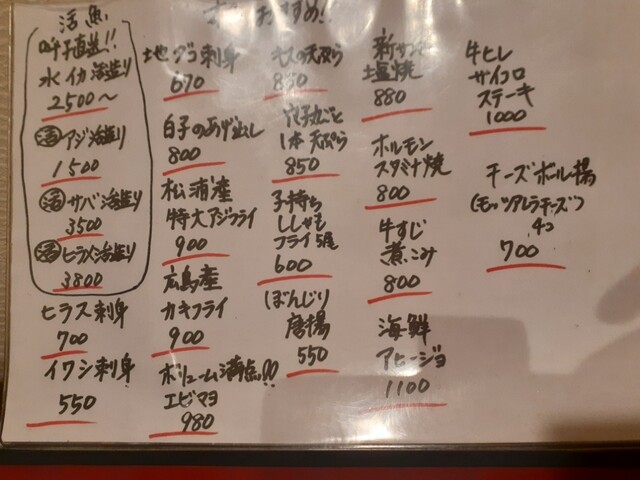 活魚
おすすめ!!
呼子直送!!
水イカ活造り
2500～
活アジ活造り
1500
活サバ活造り
3500
活ヒラメ活造り
3800
ヒラス刺身
700
イワシ刺身
550
地ダコ刺身
670
白子のあげ出し
800
松浦産
特大アジフライ
900
広島産
カキフライ
900
ボリューム満点!!
エビマヨ
980
キスの天ぷら
850
穴子丸ごと
1本天ぷら
850
子持ち
ししゃも
フライ5尾
600
ぼんじり
唐揚
550
新サンマ
塩焼
880
ホルモン
スタミナ焼
800
牛すじ
煮こみ
800
海鮮
アヒージョ
1100
牛ヒレ
サイコロ
ステーキ
1000
チーズボール揚
(モッツアレラチーズ)
4コ
700